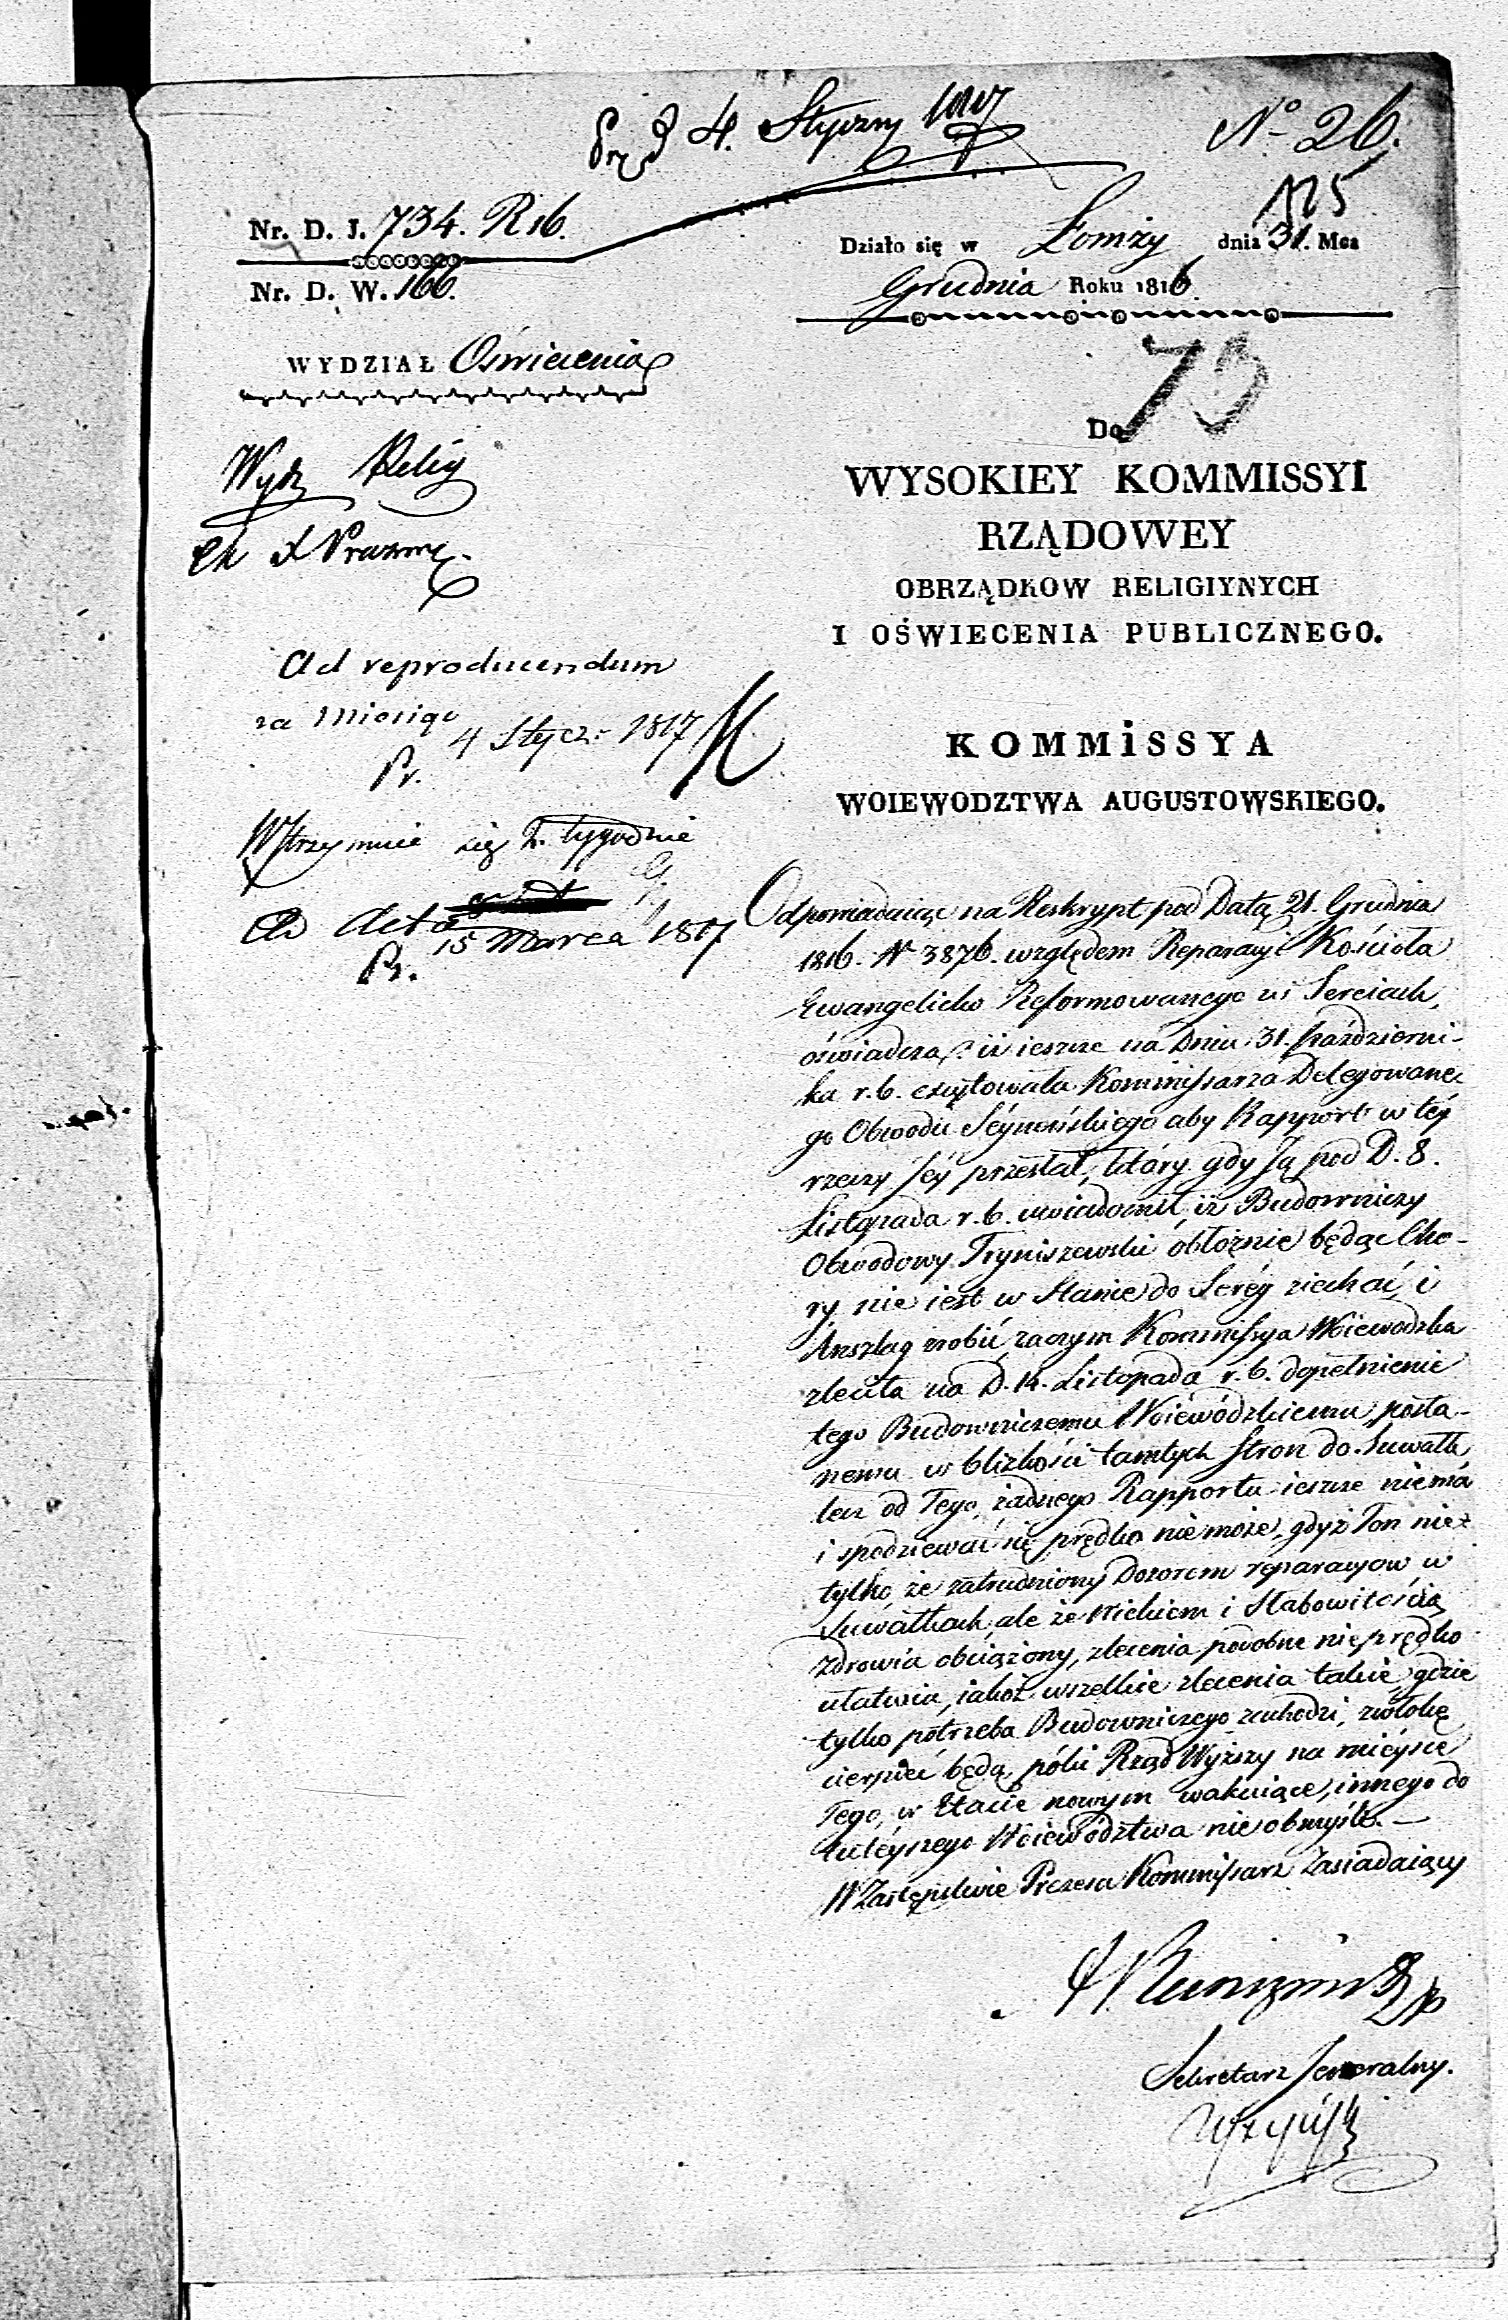 4. Styczny 1817
No 26.
125
Nr. D. J. 734. R 16.
Nr. D. W. 166.
Działo się w Łomży dnia 31. Mca
Grudnia Roku 1816.
WYDZIAŁ Oświecenia
73
Wydz Relig
Do
WYSOKIEY KOMMISSYI
RZĄDOWEY
OBRZĄDKOW RELIGIYNYCH
I OŚWIECENIA PUBLICZNEGO.
Ad reproducendum
za Miesiąc
4 Stycz. 1817
Pr.
Wstrzymuie się 2. tygodnie
Ad Acta
15 Marca 1817
Pr.
KOMMiSSYA
WOIEWODZTWA AUGUSTOWSKIEGO.
Odpowiadaiąc na Reskrypt pod Datą 21. Grudnia
1816. N 3876. względem Reparacyi Kościoła
Ewangelicko Reformowanego w Sereiach,
oświadcza: iż ieszcze na Dniu 31. Październi-
ka r. b. excytowała Kommissarza Delegowane-
go Obwodu Seyneńskiego aby Rapport w téy
rzeczy Jéy przesłał, który gdy Ją pod D. 8.
Listopada r. b. uwiadomił, iż Budowniczy
Obwodowy Tryniszewski obłożnie będąc Cho-
ry nie iest w Stanie do Seréy ziechać i
Anszlag zrobić, zaczym Kommissya Woiewodzka
zleciła na D. 14. Listopada r. b. dopełnienie
tego Budowniczemu Woiewódzkiemu posła-
nemu w blizkości tamtych Stron do Suwałk
lecz od Tego, żadnego Rapportu ieszcze niema
i spodziewać się prędko nie może, gdyż Ton nie-
tylko, że zatrudniony Dozorem reparacyow w
Suwałkach, ale że Wiekiem i Słabowitością
Zdrowia obciążony, zlecenia podobne nieprędko
ułatwia, iakoż wszelkie zlecenia takie, gdzie
tylko potrzeba Budowniczego zachodzi, zwłokę
cierpieć będą, póki Rząd Wyższy na mieysce
Tego, w Etacie nowym wakuiące, innego do
tuteyszego Woiewództwa nie obmyśli. —
W Zastępstwie Prezesa Kommissarz Zasiadaiący
Sekretarz Jeneralny.